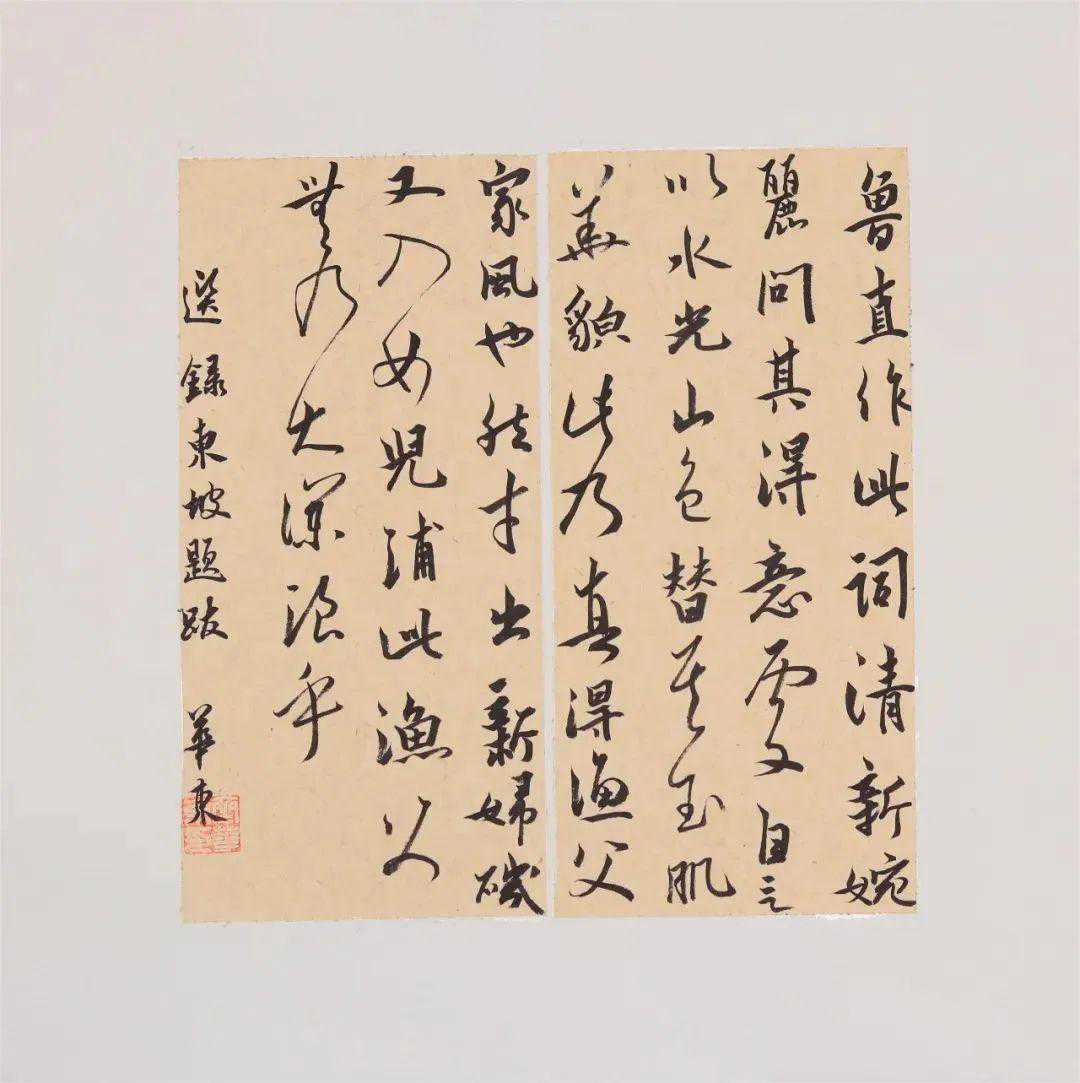 魯直作此詞清新婉
麗問其得意處自言
以水光山色替其玉肌
花貌此乃真得漁父
家風也然才出新婦磯
又入女兒浦此漁父
無乃大瀾浪乎
選錄東坡題跋 華東